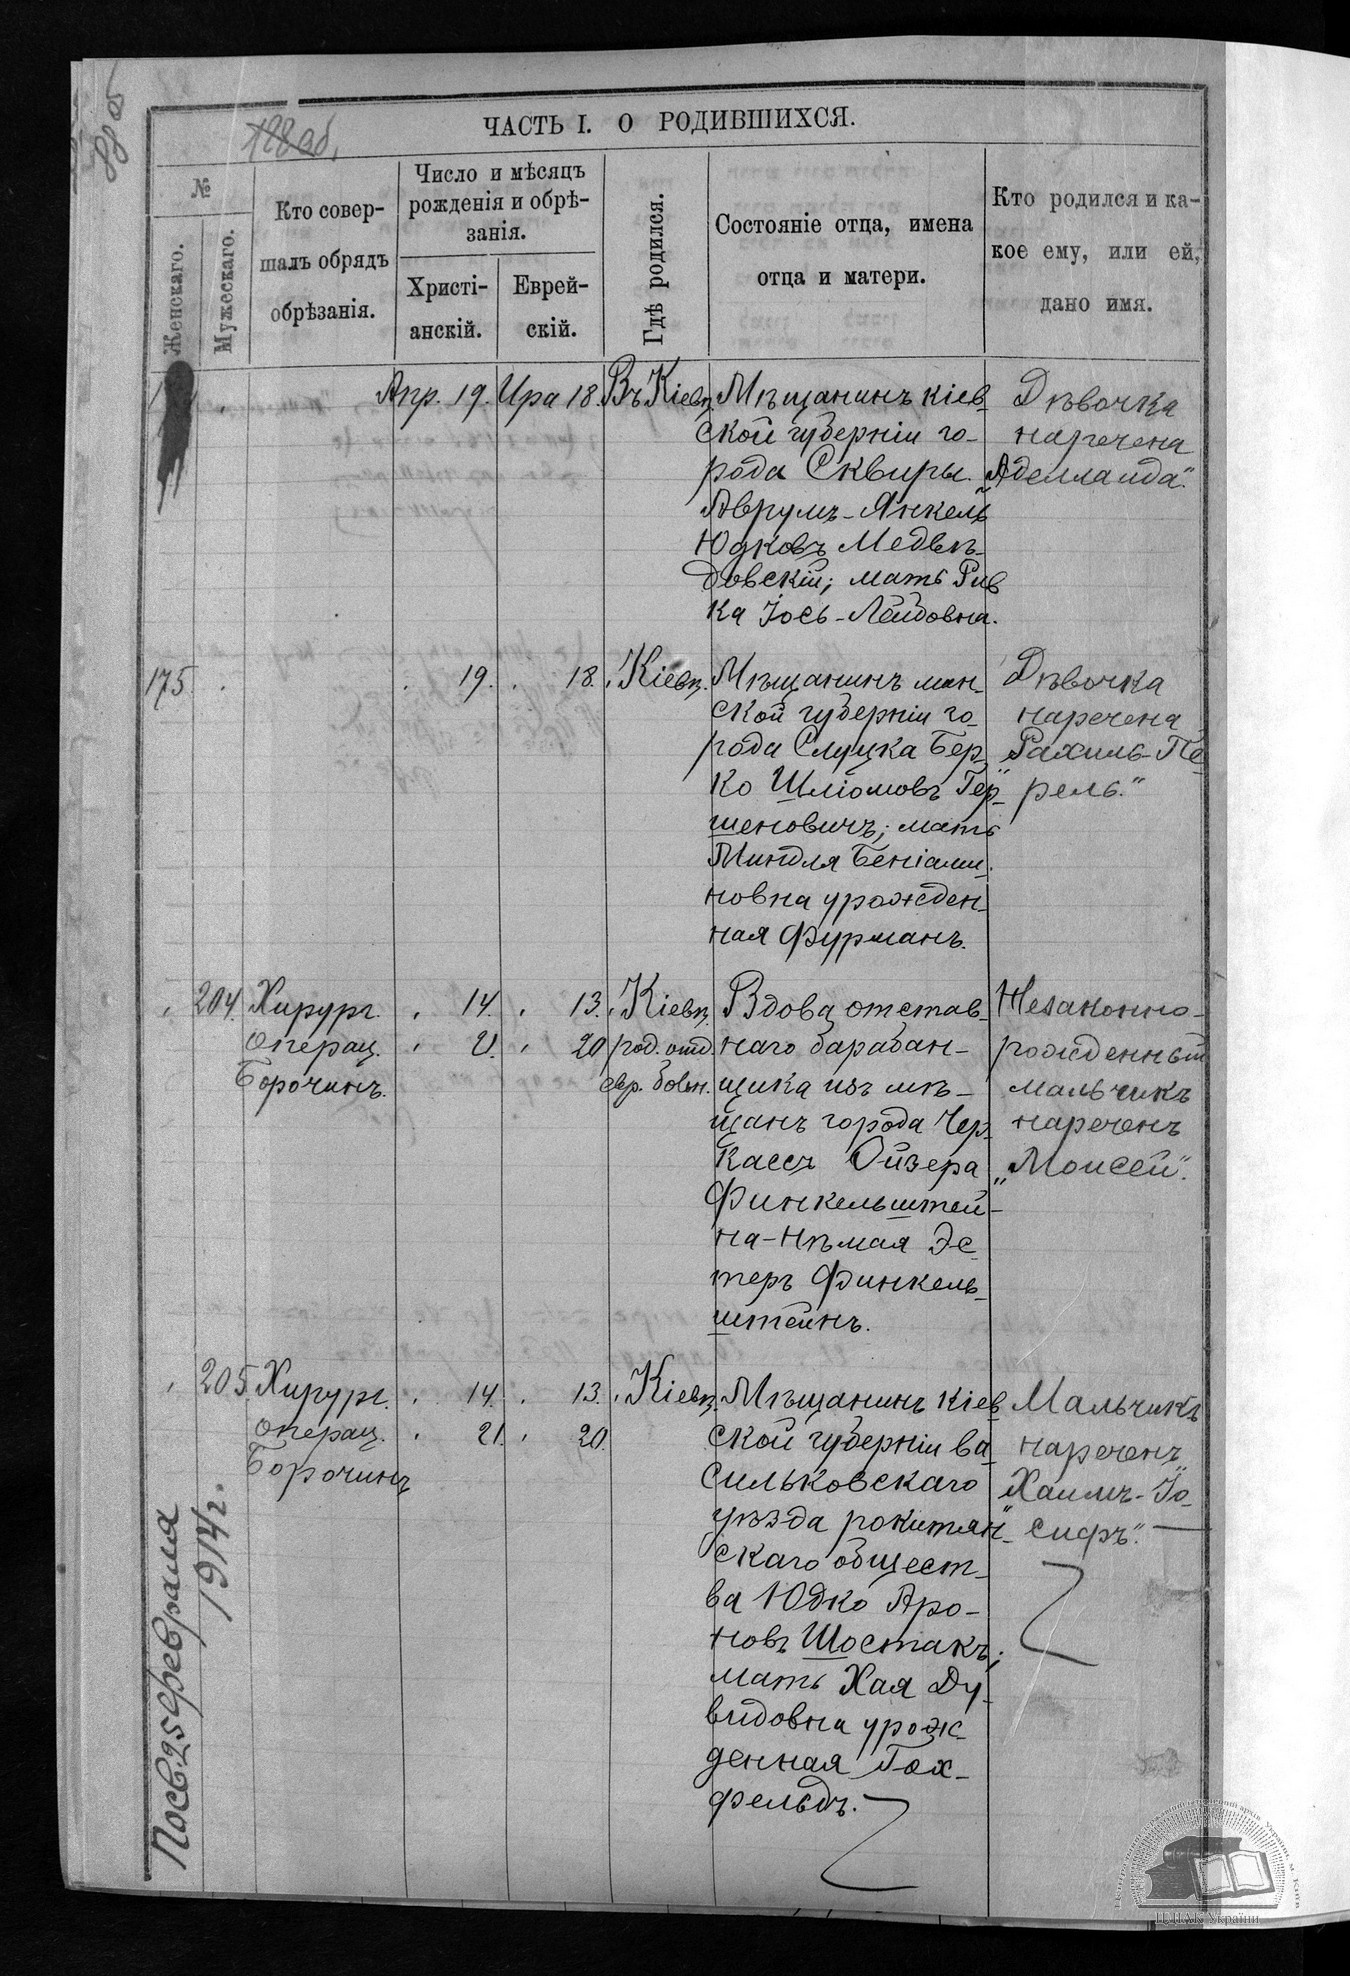 88 об
128 об.
ЧАСТЬ I. О РОДИВШИХСЯ.
№
Женскаго.
Мужескаго.
Кто совер-
шалъ обрядъ
обрѣзанія.
Число и мѣсяцъ
рожденія и обрѣ-
занія.
Христі-
анскій.
Еврей-
скій.
Гдѣ родился.
Состояніе отца, имена
отца и матери.
Кто родился и ка-
кое ему, или ей,
дано имя.
Апр. 19. Ира 18. Въ Кіевѣ.
Мѣщанинъ кіев-
ской губерніи го-
рода Сквиры
Аврумъ-Янкель
Юдковъ Медвѣ-
довскій; мать Рив
ка Іось-Лейбовна.
Дѣвочка
наречена
„Аделаида“.
175 19. 18. Кіевѣ.
Мѣщанинъ мин-
ской губерніи го-
рода Слуцка Бер-
ко Шліомовъ Гер-
шеновичъ; мать
Миндля Беніами-
новна урожден-
ная Фурманъ.
Дѣвочка
наречена
Рахиль-Пе-
рель.“
204. Хирург.
операц.
Борочинъ.
14. 13.
21. 20
Кіевѣ.
род. отд.
евр. больн.
Вдова отстав-
наго барабан-
щика изъ мѣ-
щанъ города Чер-
кассъ Ойзера
Финкельштей-
на-нѣмая Эс-
теръ Финкель-
штейнъ.
Незаконно-
рожденный
мальчикъ
нареченъ
„Моисей“.
205. Хирург.
операц.
Борочинъ
14. 13.
21. 20.
Кіевѣ.
Мѣщанинъ кіев
ской губерніи ва
сильковскаго
уѣзда рокитян-
скаго общест-
ва Юдко Аро-
новъ Шостакъ;
мать Хая Ду-
видовна урож-
денная Гох-
фельдъ.
Мальчикъ
нареченъ
„Хаимъ-Іо-
сифъ“.
Посв. 25 февраля
1914 г.
ЦДІАК України